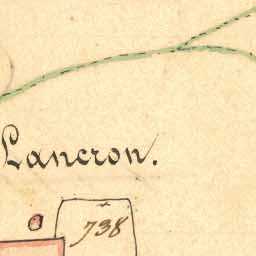 Lancron.
738